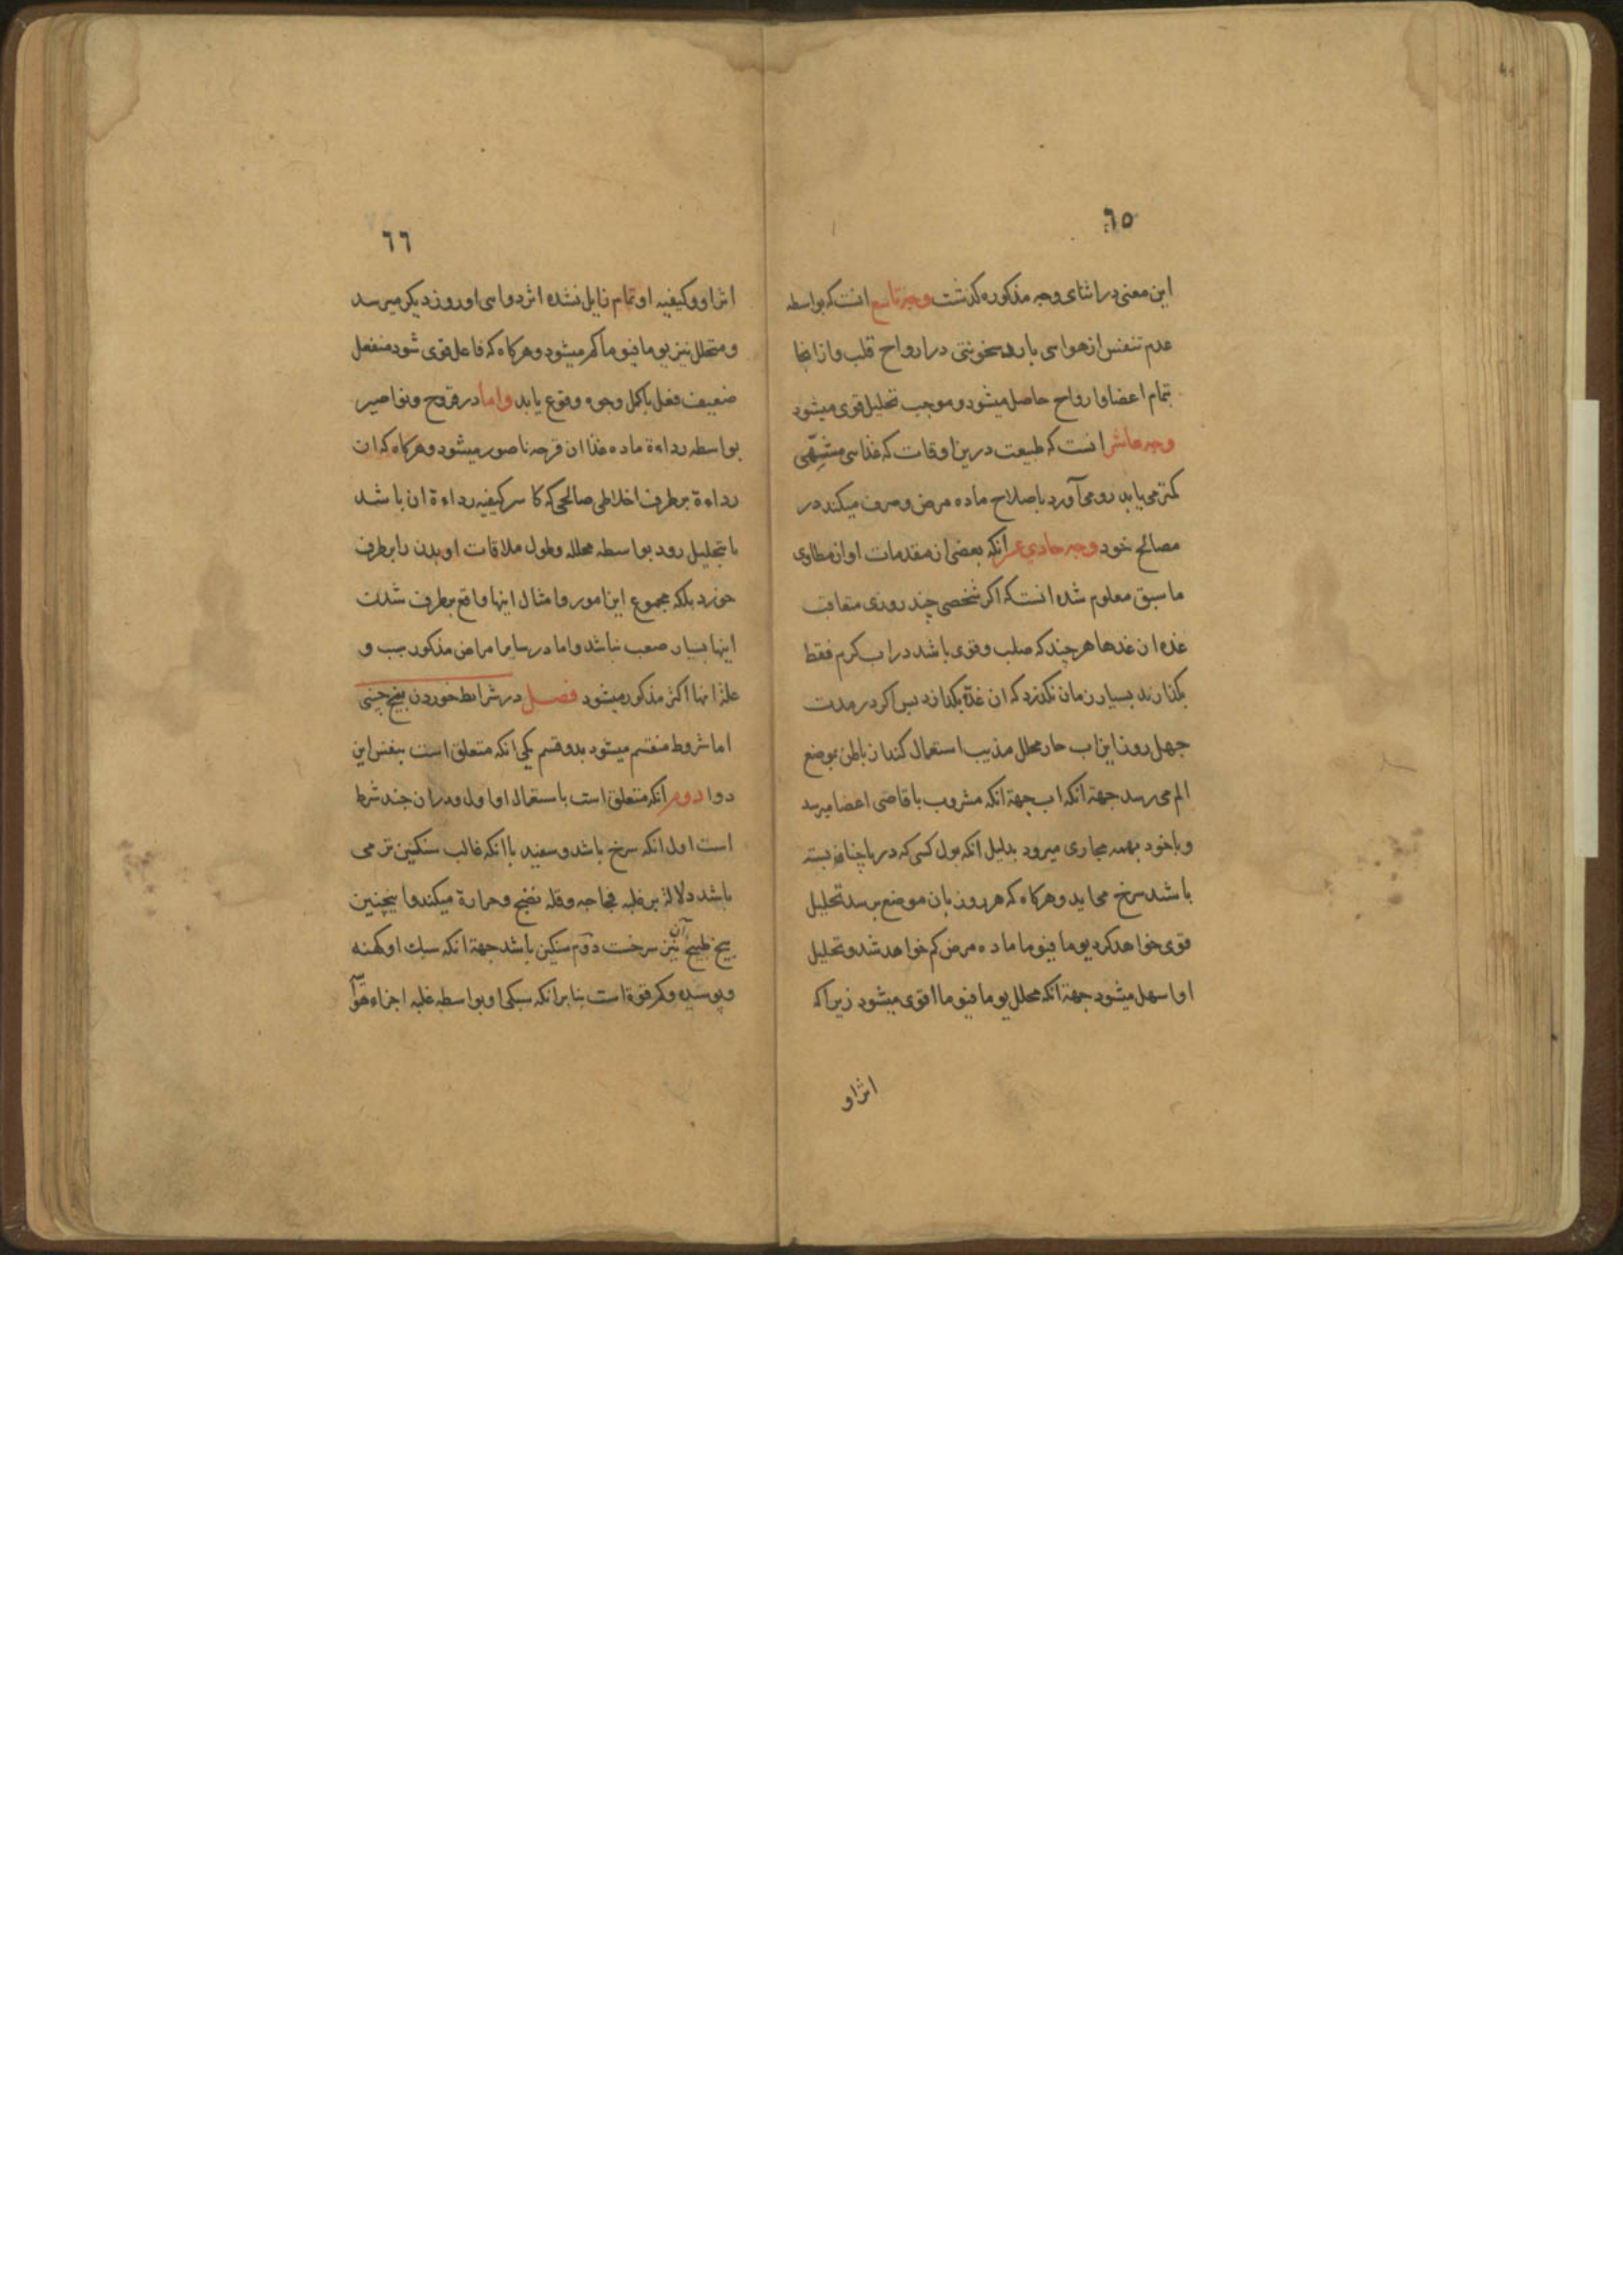 ٦٥
این معنی در اثنای وجه مذکوره کذشت وجه تاسع انست که بواسطه
عدم تنفس از هوای بارد سخونتی در ارواح قلب و از انجا
بتمام اعضا و ارواح حاصل میشود و موجب تحلیل قوی میشود
وجه عاشر انست که طبیعت درین اوقات که غذای مشتهی
کمتر می یابد رو می آورد باصلاح ماده مرض و صرف میکند در
مصالح خود وجه حادی عشر انکه بعضی از مقدمات او از مطاوی
ما سبق معلوم شده انست که اکر شخصی چند روزی متعاقب
غده از غدها هر چند که صلب و قوی باشد در اب کرم فقط
بکذارند بسیار زمان نکذرد که ان غده بکدازد پس اکر در مدت
چهل روز این اب حار محلل مذیب استعمال کنند از باطن بموضع
الم می رسد جهة انکه اب بجهة انکه مشروب باقاصی اعضا میرسد
و باخود بهمه مجاری میرود بدلیل انکه بول کسی که در پا حنا بسته
باشد سرخ می اید و هرکاه که هر روز بان موضع برسد تحلیل
قوی خواهد کرد یوما فیوما ماده مرض کم خواهد شد و تحلیل
او اسهل میشود جهة انکه محلل یوما فیوما اقوی میشود زیرا که
اثر او
٦٦
اثر او و کیفیه او تمام زایل نشده اثر دوای او روز دیکر میرسد
و متحلل نیز یوما فیوما کمتر میشود و هرکاه که فاعل قوی شود منفعل
ضعیف فعل باکمل وجوه وقوع یابد و اما در قروح و نواصیر
بواسطه رداءة ماده غذا ان قرحه ناصور میشود و هرکاه که ان
رداءة برطرف اخلاطی صالحی که کاسر کیفیه رداءة ان باشد
یا بتحلیل رود بواسطه محلله و طول ملاقات او بدن را برطرف
خورد بلکه مجموع این امور و امثال اینها واقع برطرف شدن
اینها بسیار صعب نباشد و اما در سایر امراض مذکور سبب و
علة انها اکثر مذکور میشود فصل در شرایط خوردن بیخ چینی
اما شروط منقسم میشود بدو قسم یکی انکه متعلق است بنفس این
دوا دوم انکه متعلق است باستعمال او اول و دران چند شرط
است اول انکه سرخ باشد و سفید باانکه غالب سنکین تر می
باشد دلالة بر غلبه فجاجه و قله نضج و حرارة میکند و اینچنین
بیخ طبیخ آن نیز سرخست دوم سنکین باشد جهة انکه سبک او کهنه
و پوسیده و کم قوة است بنابر انکه سبکی او بواسطه غلبه اجزاء هوا